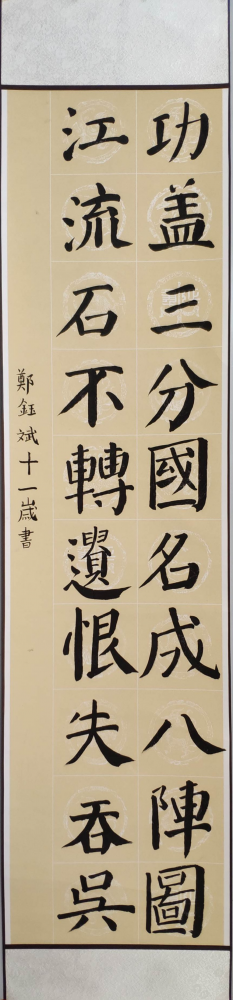 功盖三分國名成八陣圖
江流石不轉遺恨失吞吳
鄭鈺斌十一歲書